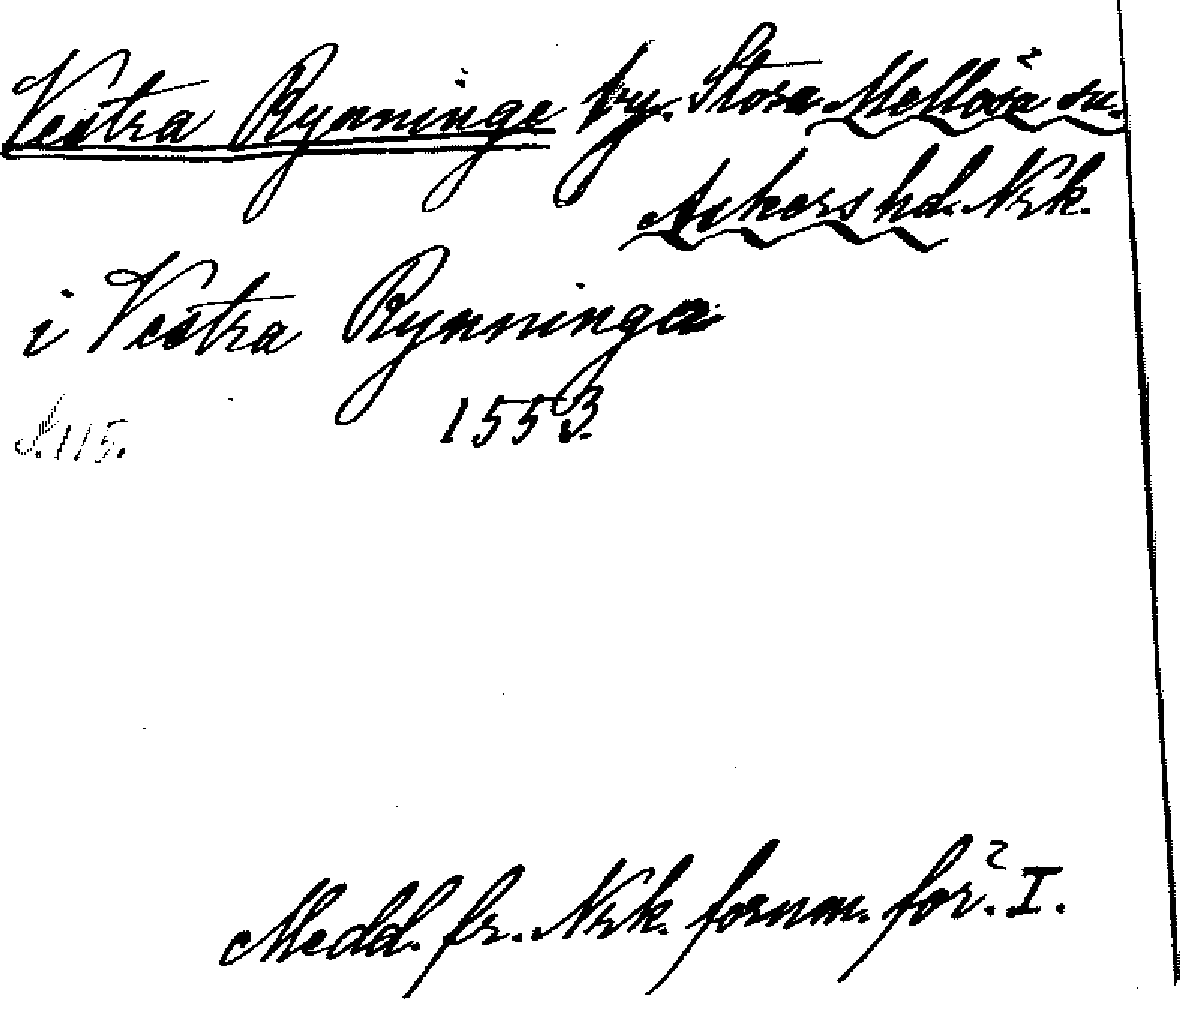 Vestra Rynninge by. Stora Mellösa sn.
Askers hd. Nrk.
i Vestra Rynninga
1553.
S. 115.
Medd. fr. Nrk. fornm. för. I.